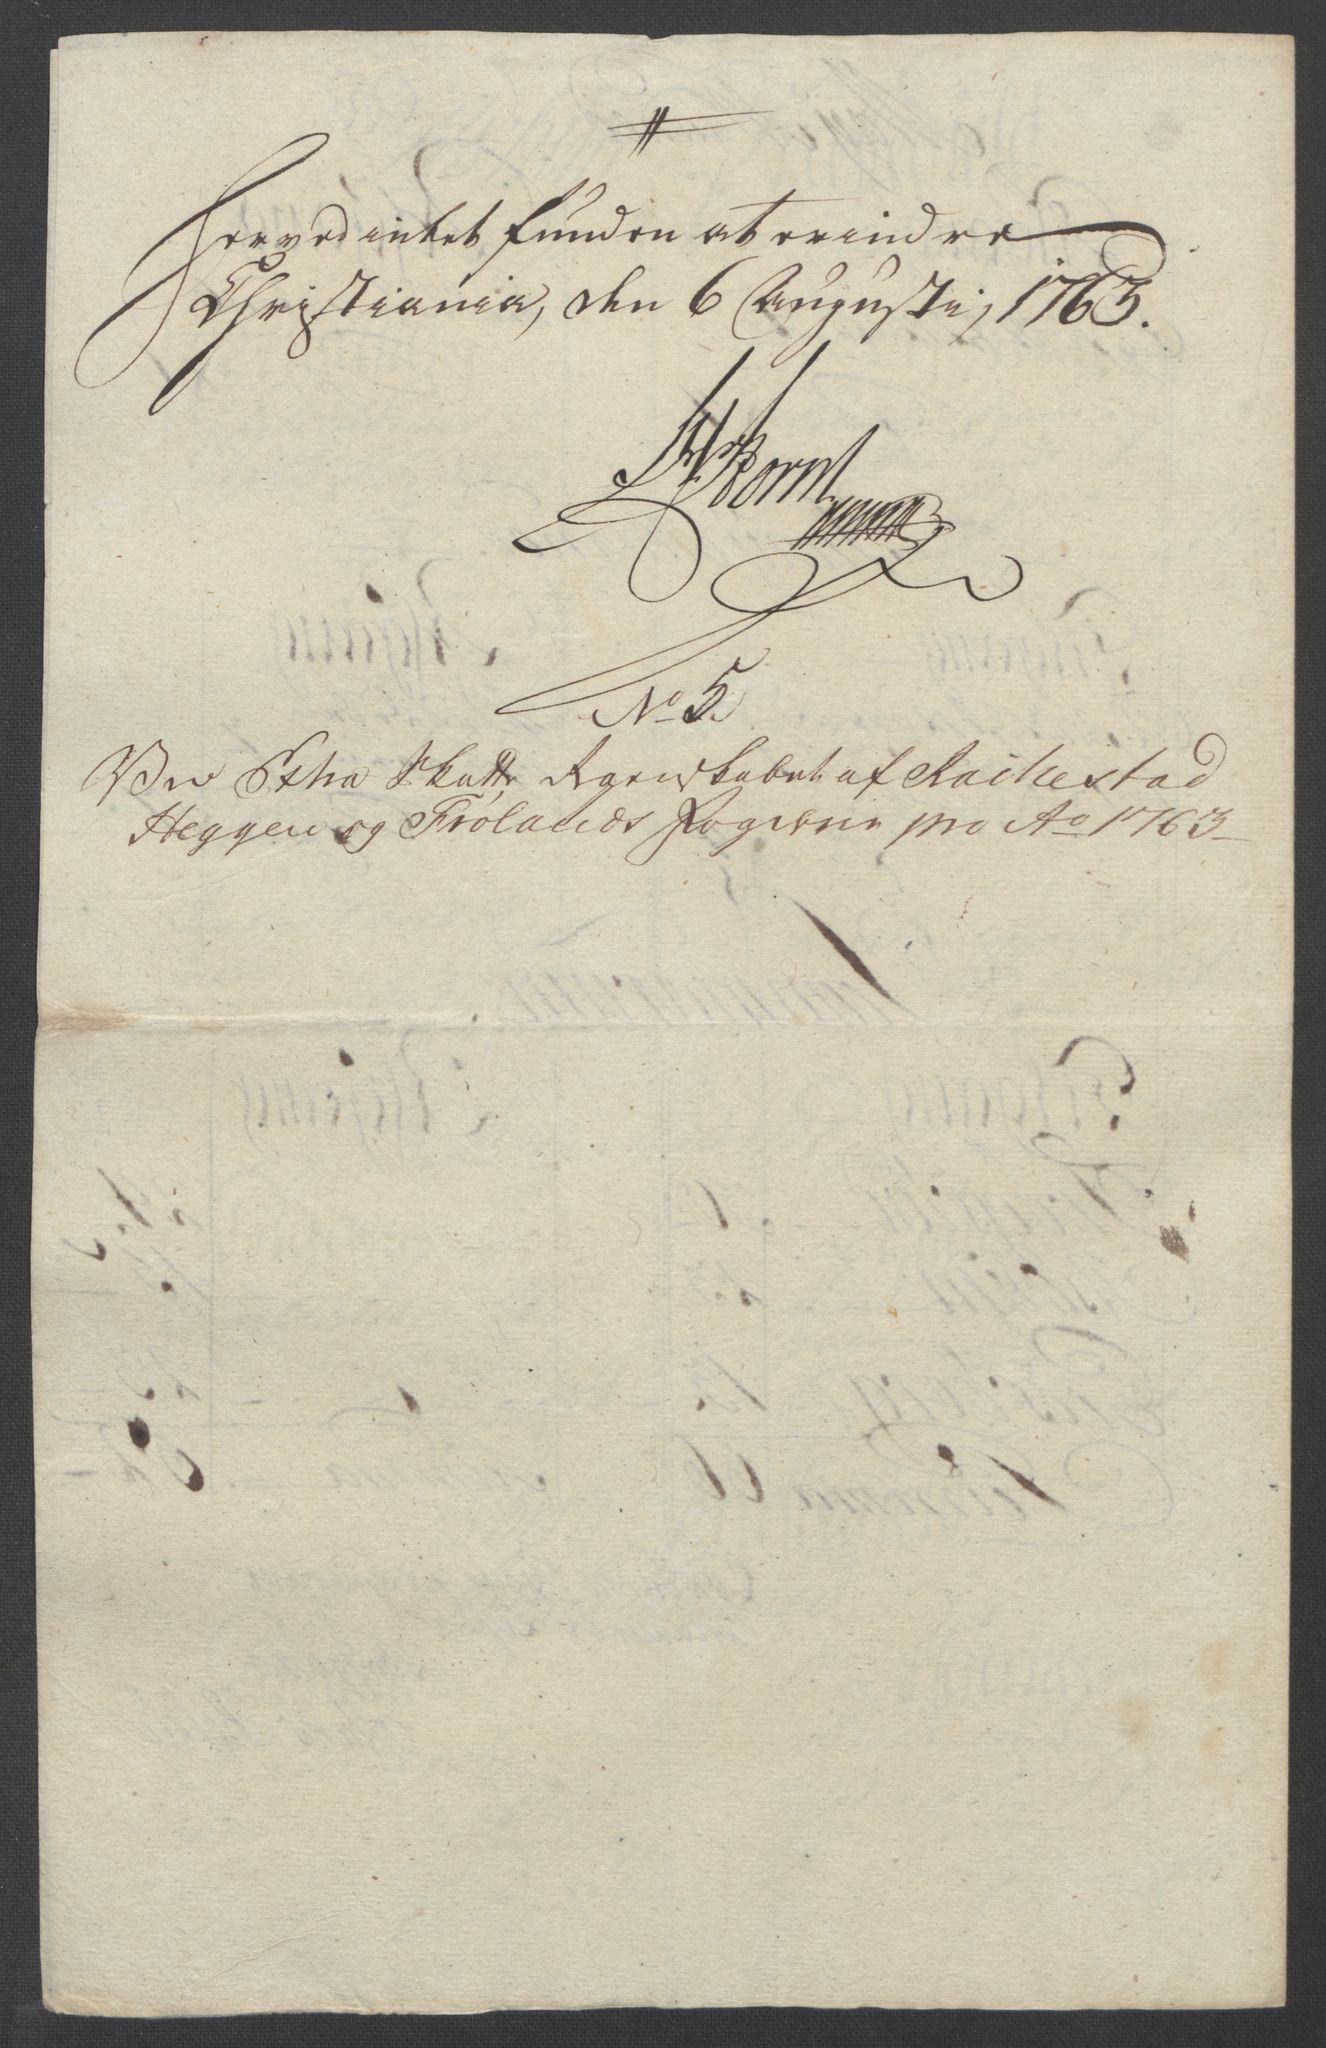 Herved intet funden at erindre
Christiania, den 6 Augusti, 1763.
No 5.
Ved Extra Skatte Regnskabet af Rackestad
Heggen og Frølands Fogderie pro Ao 1763